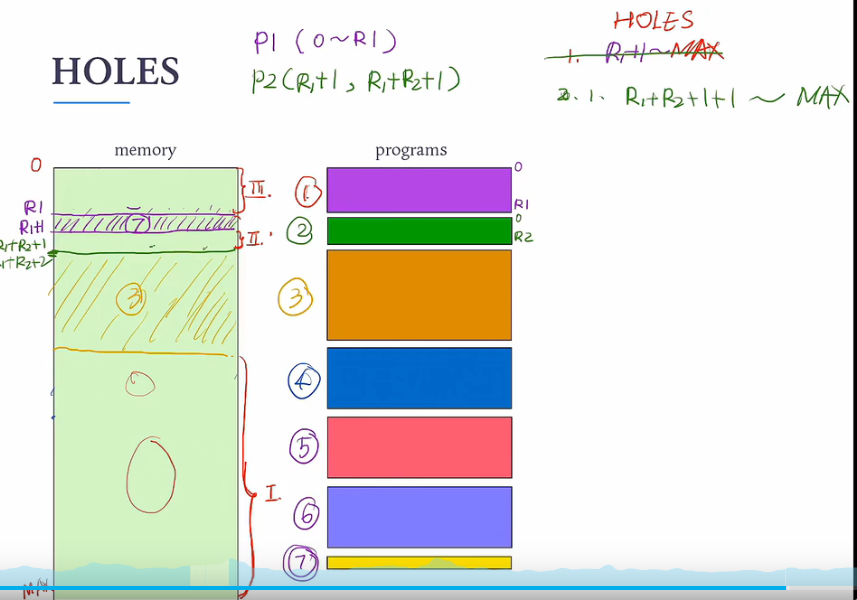 HOLES
P1 (0~R1)
P2 (R1+1, R1+R2+1)
HOLES
1. R1+1~MAX
2. 1. R1+R2+1+1 ~ MAX
memory
programs
0
III.
R1
R1+1
7
II.
R1+R2+1
R1+R2+2
3
I.
MAX
1
0
R1
2
0
R2
3
4
5
6
7